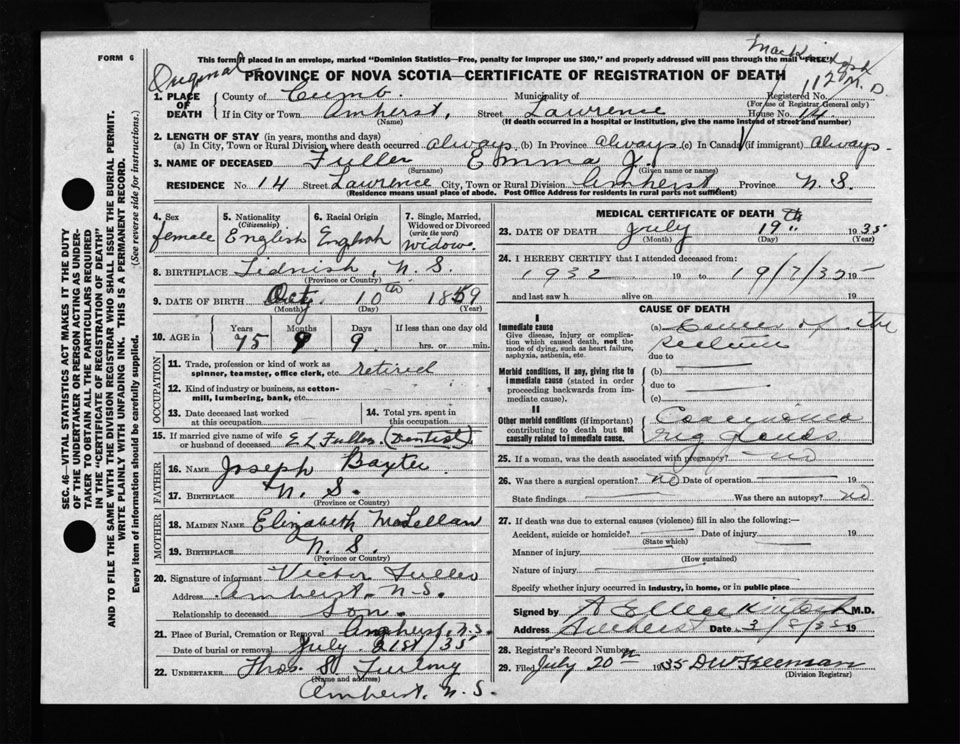 FORM 6
This form if placed in an envelope, marked "Dominion Statistics—Free, penalty for improper use $300," and properly addressed will pass through the mail "FREE"
Original
PROVINCE OF NOVA SCOTIA—CERTIFICATE OF REGISTRATION OF DEATH
Registered No.
(For use of Registrar General only)
1. PLACE OF DEATH
County of Cumb. Municipality of
If in City or Town Amherst, Street Lawrence House No. 14
(Name) (If death occurred in a hospital or institution, give the name instead of street and number)
2. LENGTH OF STAY (in years, months and days)
(a) In City, Town or Rural Division where death occurred always (b) In Province always (c) In Canada (if immigrant) always.
3. NAME OF DECEASED Fuller Emma J.
(Surname) (Given name or names)
RESIDENCE No. 14 Street Lawrence City, Town or Rural Division Amherst Province N. S.
(Residence means usual place of abode. Post Office Address for residents in rural parts not sufficient)
4. Sex female
5. Nationality (Citizenship) English
6. Racial Origin English
7. Single, Married, Widowed or Divorced (write the word) widow
8. BIRTHPLACE Tidnish, N. S.
(Province or Country)
9. DATE OF BIRTH Oct 10th 1859
(Month) (Day) (Year)
10. AGE in Years 75 Months 9 Days 9 If less than one day old hrs. or min.
OCCUPATION
11. Trade, profession or kind of work as spinner, teamster, office clerk, etc. retired
12. Kind of industry or business, as cotton-mill, lumbering, bank, etc.
13. Date deceased last worked at this occupation
14. Total yrs. spent in this occupation
15. If married give name of wife or husband of deceased E L Fuller (Dentist)
FATHER
16. NAME Joseph Baxter
17. BIRTHPLACE N. S.
(Province or Country)
MOTHER
18. MAIDEN NAME Elizabeth McLellan
19. BIRTHPLACE N. S.
(Province or Country)
20. Signature of informant Victor Fuller
Address Amherst, N. S.
Relationship to deceased Son.
21. Place of Burial, Cremation or Removal Amherst, N.S.
Date of burial or removal July 21st/35
22. UNDERTAKER Thos. S. Furlong
(Name and address)
Amherst, N. S.
MEDICAL CERTIFICATE OF DEATH
23. DATE OF DEATH July 19th 1935
(Month) (Day) (Year)
24. I HEREBY CERTIFY that I attended deceased from:
1932 19 to 19/7/35 19
and last saw h alive on 19
CAUSE OF DEATH
I
Immediate cause
Give disease, injury or complication which caused death, not the mode of dying, such as heart failure, asphyxia, asthenia, etc.
(a) Cancer of the
rectum
due to
Morbid conditions, if any, giving rise to immediate cause (stated in order proceeding backwards from immediate cause).
(b)
due to
(c)
II
Other morbid conditions (if important) contributing to death but not causally related to immediate cause.
Carcinoma
glands
25. If a woman, was the death associated with pregnancy? no
26. Was there a surgical operation? no Date of operation 19
State findings Was there an autopsy? no
27. If death was due to external causes (violence) fill in also the following:—
Accident, suicide or homicide? Date of injury 19
(State which)
Manner of injury
(How sustained)
Nature of injury
Specify whether injury occurred in industry, in home, or in public place
Signed by A E Mackintosh M.D.
Address Amherst Date 3/8/35 19
28. Registrar's Record Number
29. Filed July 20th 1935 DW Freeman
(Division Registrar)
SEC. 46—VITAL STATISTICS ACT MAKES IT THE DUTY
OF THE UNDERTAKER OR PERSON ACTING AS UNDER-
TAKER TO OBTAIN ALL THE PARTICULARS REQUIRED
IN THE "CERTIFICATE OF REGISTRATION OF DEATH"
AND TO FILE THE SAME WITH THE DIVISION REGISTRAR WHO SHALL ISSUE THE BURIAL PERMIT.
WRITE PLAINLY WITH UNFADING INK. THIS IS A PERMANENT RECORD.
Every item of information should be carefully supplied. (See reverse side for instructions.)